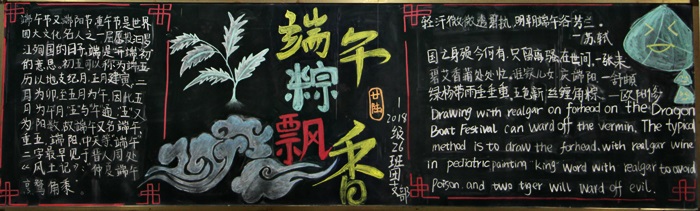 端午节又端阳节,重午节是世界
四大文化名人之一屈原投汨罗
江殉国的日子,端是"开端""初"
的意思。初五可以称为端五
历以地支纪月,正月建寅,二
月为卯至五月为午,因此五
月为午月,"五"与"午"通,"五"又
为阳数,故端午又名端午、
重五、端阳,中天等,端午
二字最早见于晋人周处
《风土记》:"仲夏端午
烹鹜角黍。
端午
粽飘香
廿陆
2019
级26
班团支部
轻汗微微透碧纨,明朝端午浴芳兰。
—苏轼
国亡身殒今何有,只留离骚在世间—张耒
碧艾香蒲处处忙。谁家儿女,庆端阳—舒頔
绿杨带雨垂垂重,五色新丝缠角粽—欧阳修
Drawing with realgar on forhead on the Dragon
Boat Festival can ward off the vermin. The typical
method is to draw the forhead. with realgar wine
in pediatric painting "king" word with realgar to avoid
poison. and two tiger will ward off evil.